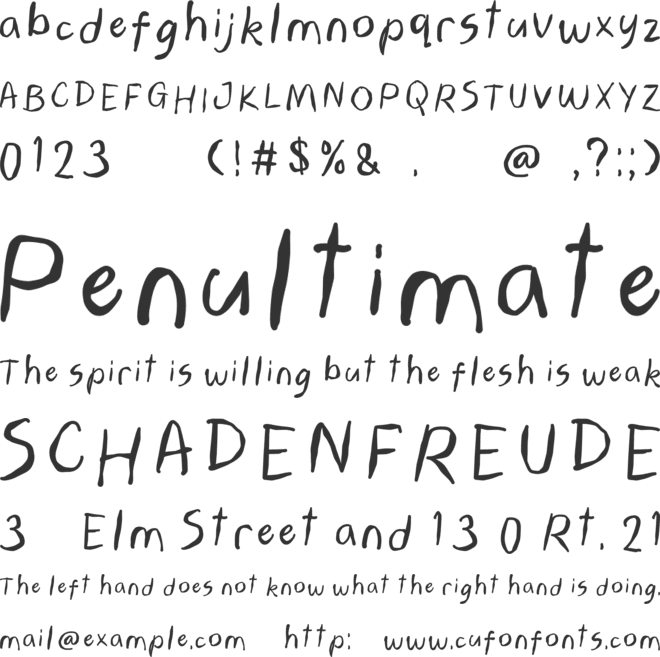 abcdefghijklmnopqrstuvwxyz
ABCDEFGHIJKLMNOPQRSTUVWXYZ
0123 (!#$%& . @ ,?:;)
Penultimate
The spirit is willing but the flesh is weak
SCHADENFREUDE
3 Elm Street and 13 0 Rt. 21
The left hand does not know what the right hand is doing.
mail@example.com http: www.cufonfonts.com